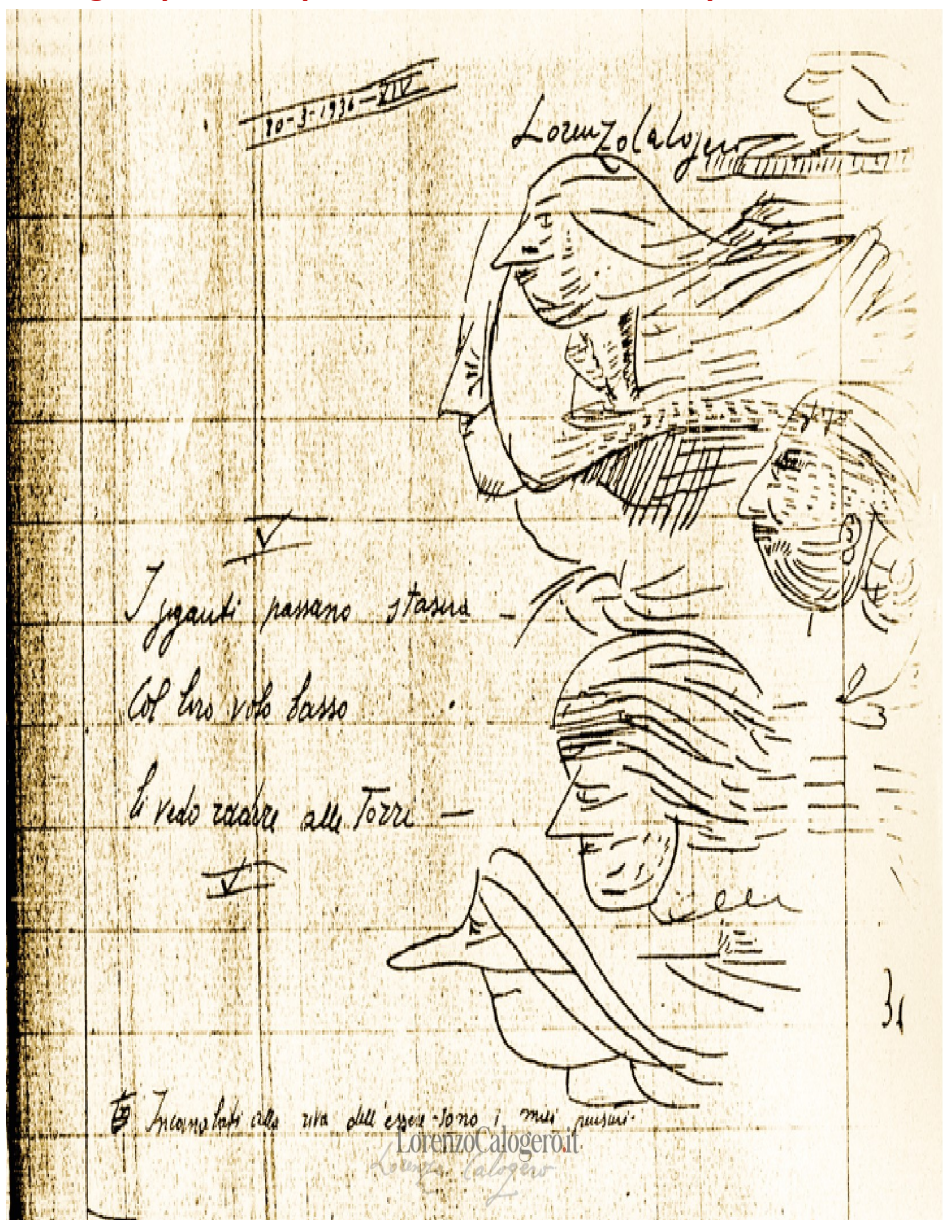 10-3-1936-XIV
Lorenzo Calogero
V
I giganti passano stasera –
Col loro volo basso .
li vedo radere alle Torri –
V
Incanalati alla riva dell'essere - sono i miei pensieri.
LorenzoCalogero.it
Lorenzo Calogero
31